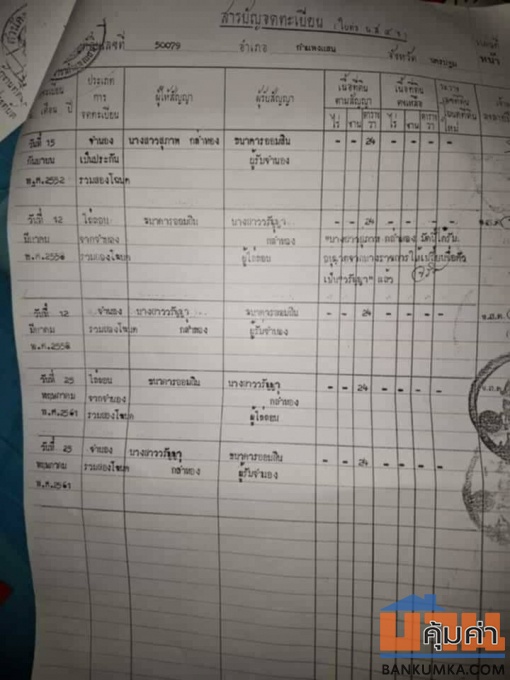 สารบัญจดทะเบียน (ใบต่อ น.ส.๔จ.)
เลขที่ 50079 อำเภอ กำแพงแสน จังหวัด นครปฐม หน้า
ประเภทการจดทะเบียน ผู้ให้สัญญา ผู้รับสัญญา เนื้อที่ดินตามสัญญา เนื้อที่ดินคงเหลือ
ไร่ งาน ตารางวา ไร่ งาน ตารางวา
วันที่ 15 จำนอง นางสาวสุภาพ กล่ำทอง ธนาคารออมสิน - - 24 - - - -
กันยายน เป็นประกัน ผู้รับจำนอง
พ.ศ.2552 รวมสองโฉนด
วันที่ 12 ไถ่ถอน ธนาคารออมสิน นางสาววรัญญา - - 24 - - - -
มีนาคม จากจำนอง กล่ำทอง
พ.ศ.2556 รวมสองโฉนด ผู้ไถ่ถอน
เป็น"วรัญญา" แล้ว
วันที่ 12 จำนอง นางสาววรัญญา ธนาคารออมสิน - - 24 - - - -
มีนาคม รวมสองโฉนด กล่ำทอง ผู้รับจำนอง
พ.ศ.2556
วันที่ 25 ไถ่ถอน ธนาคารออมสิน นางสาววรัญญา - - 24 - - - -
พฤษภาคม จากจำนอง กล่ำทอง
พ.ศ.2561 รวมสองโฉนด ผู้ไถ่ถอน
วันที่ 25 จำนอง นางสาววรัญญา ธนาคารออมสิน - - 24 - - - -
พฤษภาคม รวมสองโฉนด กล่ำทอง ผู้รับจำนอง
พ.ศ.2561
บ้าน
คุ้มค่า
BANKUMKA.COM